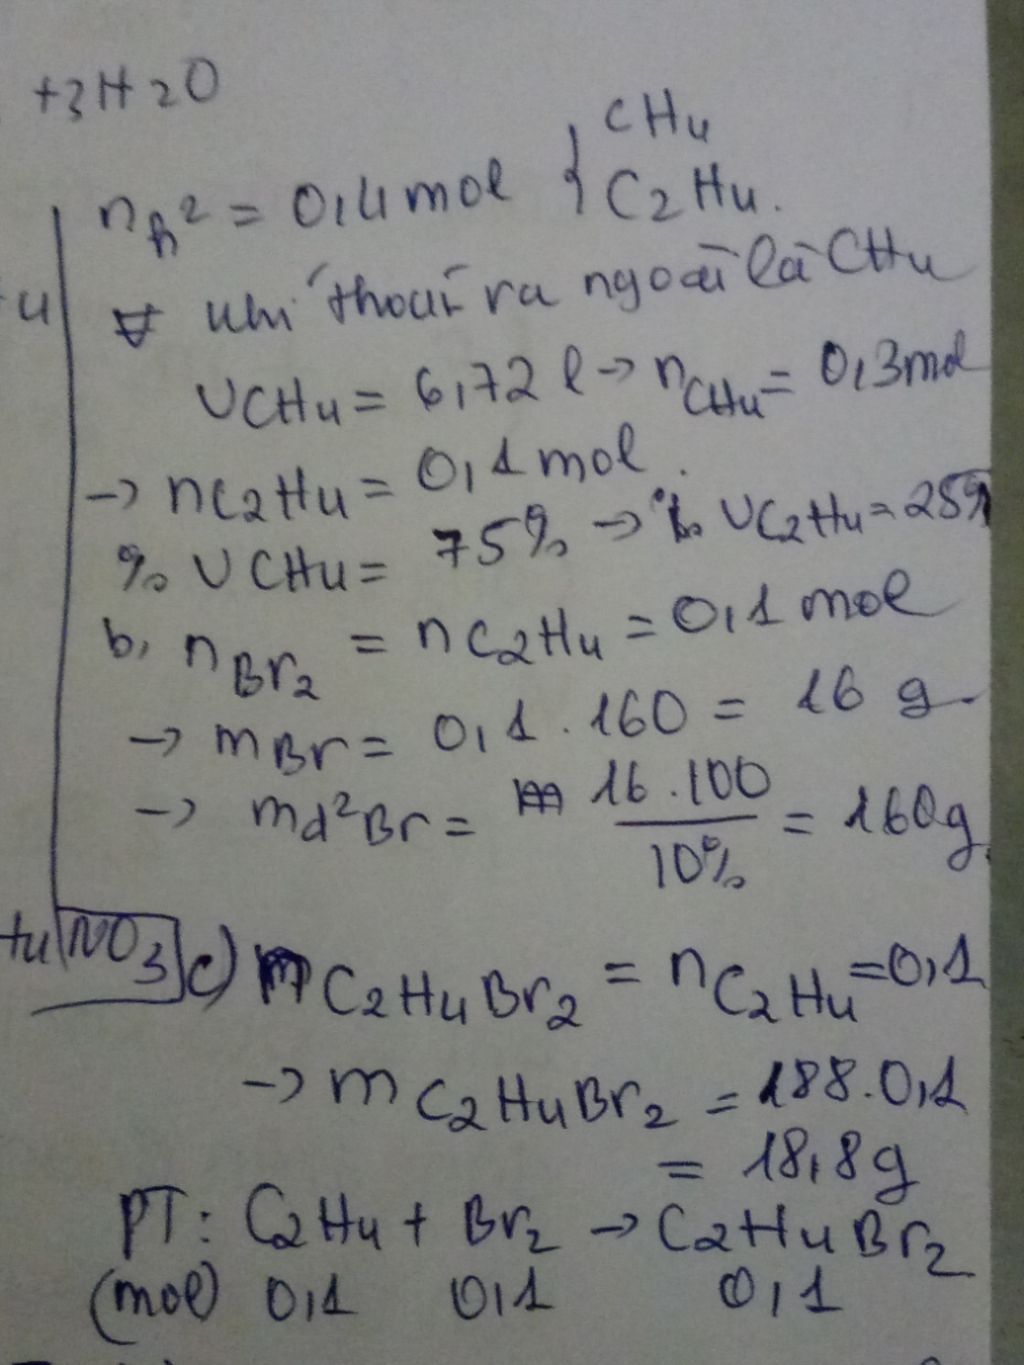 +3H2O
n h² = 0,4 mol { CH4
C2H4.
khí thoát ra ngoài là CH4
VCH4 = 6,72 l → nCH4 = 0,3 mol
→ nC2H4 = 0,1 mol.
% VCH4 = 75% → % VC2H4 = 25%
b, nBr2 = nC2H4 = 0,1 mol
→ mBr = 0,1 . 160 = 16 g
→ md²Br = 16.100 / 10% = 160g
NO3
c) C2H4Br2 = nC2H4 = 0,1
→ m C2H4Br2 = 188.0,1
= 18,8g
PT: C2H4 + Br2 → C2H4Br2
(mol) 0,1 0,1 0,1